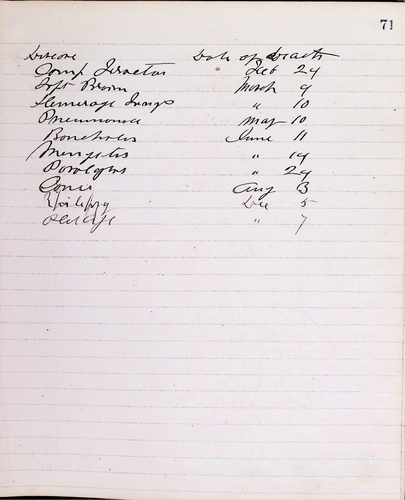 71
Disease Date of Death
Comp Fractur Feb 29
Soft Brain March 9
Hemorage Lungs " 10
Pneumonia May 10
Bronchitis June 11
Mengitis " 19
Paralysis " 29
Aug 3
Epilepsy Dec 5
Old Age " 7